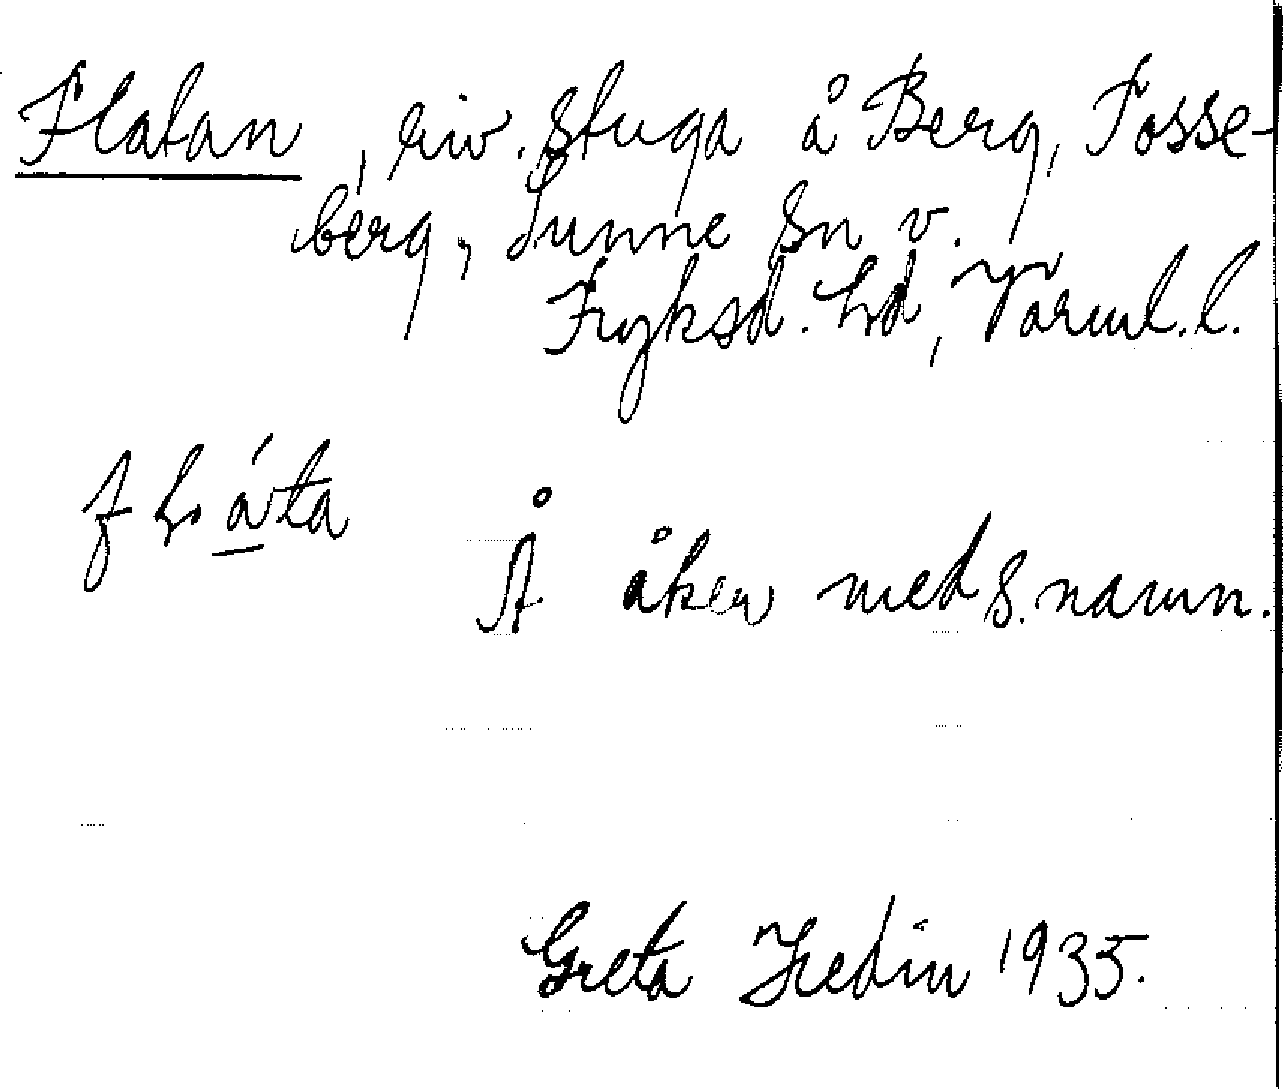 Flatan, riv. stuga å Berg, Fosse-
berg, Sunne sn v.
Fryksd. hd, Värml. l.
Å åker med s. namn.
Greta Hedin 1935.